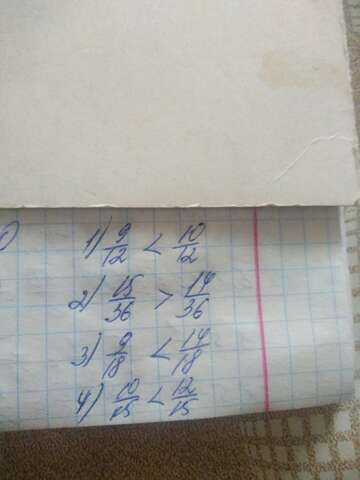 1) 9/12 < 10/12
2) 15/36 > 14/36
3) 9/18 < 14/18
4) 10/15 < 12/15